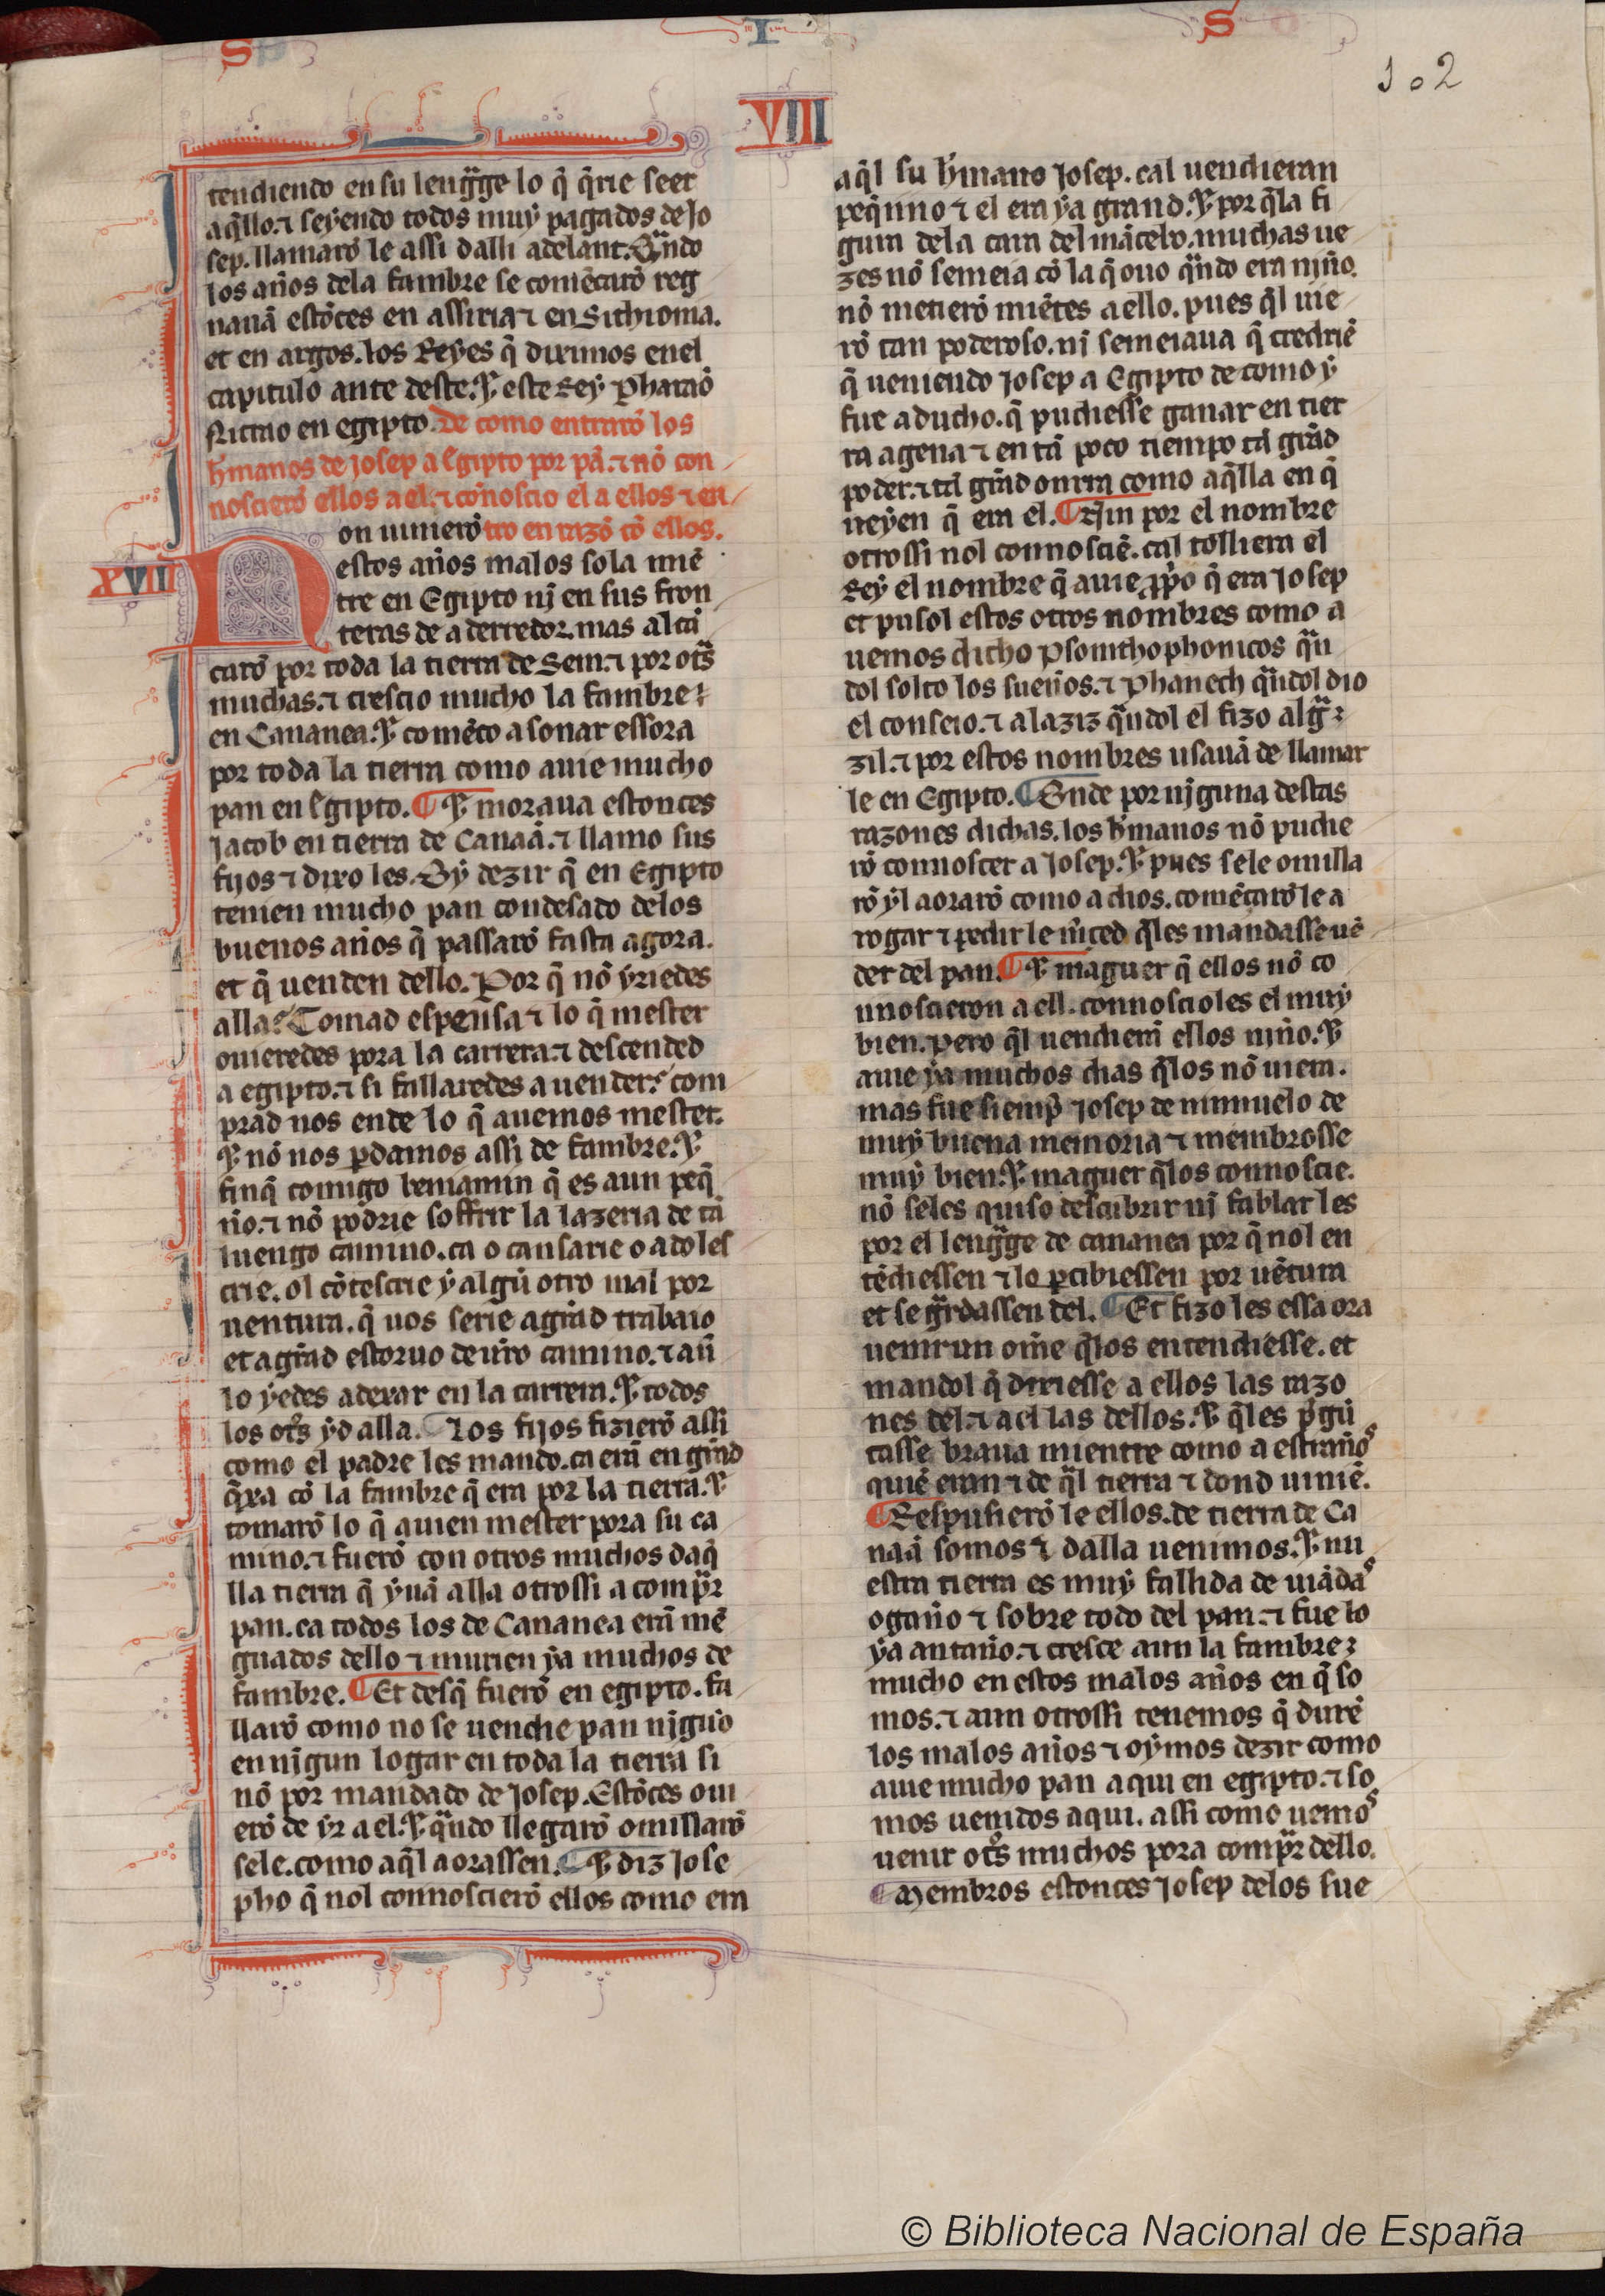 S I S
VIII
102
tendiendo en su leng̃ge lo q̃ q̃rie seer
aq̃llo. ⁊ seyendo todos muy pagados de Jo
sep. llamarõ le assi dalli adelant. Q̃ndo
los años dela fambre se comẽçarõ reg
nauã estõces en assiria ⁊ en Sithionia.
et en argos. los Reyes q̃ dixiemos enel
capitulo ante deste. ⁊ este Rey Pharaõ
Nicrao en egipto. De como entrarõ los
h̃manos de Josep a Egipto por pã. ⁊ nõ con
noscierõ ellos a el. ⁊ connoscio el a ellos ⁊ en
tro en razõ cõ ellos.
XVII
Non uinierõ
estos años malos sola miẽ
tre en Egipto nĩ en sus fron
teras de a derredor. mas alcã
çarõ por toda la tierra de Sem. ⁊ por ot̃s
muchas. ⁊ crescio mucho la fambre
en Cananea. ⁊ comẽço a sonar essora
por toda la tierra como auie mucho
pan en Egipto. ¶ ⁊ moraua estonces
Jacob en tierra de Canaã. ⁊ llamo sus
fijos ⁊ dixo les. Oy dezir q̃ en Egipto
tenien mucho pan condesado delos
buenos años q̃ passarõ fasta agora.
et q̃ uenden dello. Por q̃ nõ yriedes
alla? Tomad espensa ⁊ lo q̃ mester
ouieredes pora la carrera. ⁊ descended
a egipto. ⁊ si fallaredes a uender? com
prad nos ende lo q̃ auemos mester.
⁊ nõ nos p̃damos assi de fambre. ⁊
finq̃ comigo beniamin q̃ es aun peq̃
ño. ⁊ nõ podrie soffrir la lazeria de tã
luengo camino. ca o cansarie o adoles
crie. ol cõtescrie y algũ otro mal por
uentura. q̃ uos serie a grãd trabaio
et a grãd estoruo de ur̃o camino. ⁊ aũ
lo yedes a dexar en la carrera. ⁊ todos
los ot̃s yd alla. ¶ Los fijos fizierõ assi
como el padre les mando. ca erã en grãd
q̃xa cõ la fambre q̃ era por la tierra. ⁊
tomarõ lo q̃ auien mester pora su ca
mino. ⁊ fuerõ con otros muchos daq̃
lla tierra q̃ yuã alla otrossi a compr̃
pan. ca todos los de Cananea erã mẽ
guados dello ⁊ murien ya muchos de
fambre. ¶ Et desq̃ fuerõ en egipto. fa
llarõ como no se uendie pan nĩgũo
en nĩgun logar en toda la tierra si
nõ por mandado de Josep. Estõces oui
erõ de yr a el. ⁊ q̃ndo llegarõ omillarõ
sele. como aq̃l aorassen. ¶ ⁊ diz Jose
pho q̃ nol connoscierõ ellos como era
aq̃l su h̃mano Josep. cal uendieran
peq̃nno ⁊ el era ya grand. ⁊ por q̃la fi
gura dela cara del mãcebo. muchas ue
zes nõ semeia cõ la q̃ ouo q̃ndo era niño.
nõ metierõ miẽtes a ello. pues q̃l uie
rõ tan poderoso. nĩ semeiaua q̃ credriẽ
q̃ ueniendo Josep a Egipto de como y
fue aducho. q̃ pudiesse ganar en tier
ra agena ⁊ en tã poco tiempo tã grãd
poder. ⁊ tã grãd onrra como aq̃lla en q̃
ueyen q̃ era el. ¶ Aun por el nombre
otrossi nol connosciẽ. cal tolliera el
Rey el nombre q̃ auie p̃pio q̃ era Josep
et pusol estos otros nombres como a
uemos dicho Psomthophonicos q̃n
dol solto los sueños. ⁊ Phanech q̃ndol dio
el conseio. ⁊ alaziz q̃ndol el fizo alg̃
zil. ⁊ por estos nombres usauã de llamar
le en Egipto. ¶ Onde por nĩguna destas
razones dichas. los h̃manos nõ pudie
rõ connoscer a Josep. ⁊ pues sele omilla
rõ yl aorarõ como a dios. comẽçarõ le a
rogar ⁊ pedir le m̃ced q̃les mandasse uẽ
der del pan. ¶ ⁊ maguer q̃ ellos nõ co
nnoscieron a ell. connoscioles el muy
bien. pero q̃l uendierã ellos niño. ⁊
auie ya muchos dias q̃los nõ uiera.
mas fue siemp̃ Josep de ninnuelo de
muy buena memoria ⁊ membrosse
muy bien. ⁊ maguer q̃los connoscie.
nõ seles quiso descubrir nĩ fablar les
por el leng̃ge de cananea por q̃ nol en
tẽdiessen ⁊ lo p̃cibiessen por uẽtura
et se g̃rdassen del. ¶ Et fizo les essa ora
uenir un om̃e q̃los entendiesse. et
mandol q̃ dixiesse a ellos las razo
nes del. ⁊ a el las dellos. ⁊ q̃les p̃gũ
tasse braua mientre como a estraños
quiẽ eran ⁊ de q̃l tierra ⁊ dond uiniẽ.
¶ Respusierõ le ellos. de tierra de Ca
naã somos ⁊ dalla uenimos. ⁊ nu
estra tierra es muy fallida de uiãdas
ogaño ⁊ sobre todo del pan. ⁊ fue lo
ya antaño. ⁊ cresce aun la fambre
mucho en estos malos años en q̃ so
mos. ⁊ aun otrossi tenemos q̃ durẽ
los malos años ⁊ oymos dezir como
auie mucho pan a qui en egipto. ⁊ so
mos uenidos aqui. assi como uemos
uenir ot̃s muchos pora compr̃ dello.
¶ Membros estonces Josep delos sue
© Biblioteca Nacional de España